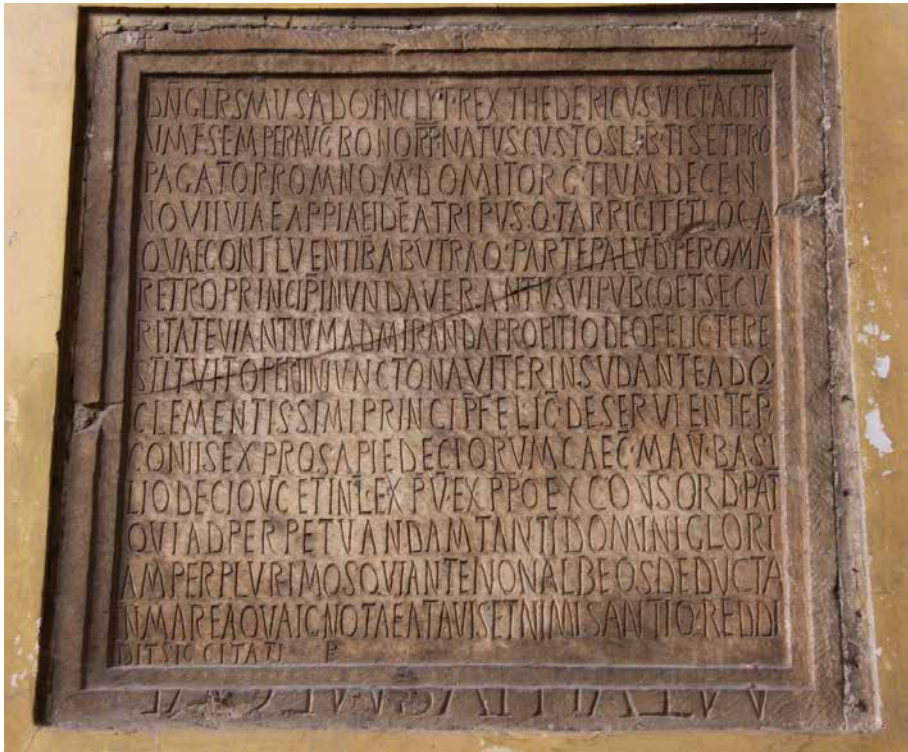 DN̄ GLR̄SMVS ADQ·INCLYT·REX THEDERICVS·VICT·AC TRI
VMF·SEMPER AVG·BONO R̄P·NATVS CVSTOS LIB·TIS ET PRO
PAGATOR ROM NOM̄ DOMITOR GTIVM DECEN
NOVII VIAE APPIAE ID E A TRIP VSQ·TARRICIT ET LOCA
QVAE CONFLVENTIB AB VTRAQ·PARTE PALVD PER OMN
RETRO PRINCIP INVNDAVERANT VSVI PVBCO ET SECV
RITATE VIANTIVM ADMIRANDA PROPITIO DEO FELICTE RE
STITVIT OPERI INIVNCTO NAVITER INSVDANTE ADQ
CLEMENTISSIMI PRINCIP FELIC DESERVIENTE P
CONIIS EX PROSAPIE DECIORVM CAEC MAV BASI
LIO DECIO VC ET INL EX PV EX PPO EX CONS ORD PAT
QVI AD PERPETVANDAM TANTI DOMINI GLORI
AM PER PLVRIMOS QVI ANTE NON ALBEOS DEDVCTA
IN MARE AQVA IGNOTAE ATAVIS ET NIMIS ANTIQ·REDDI
DIT SICCITATI P